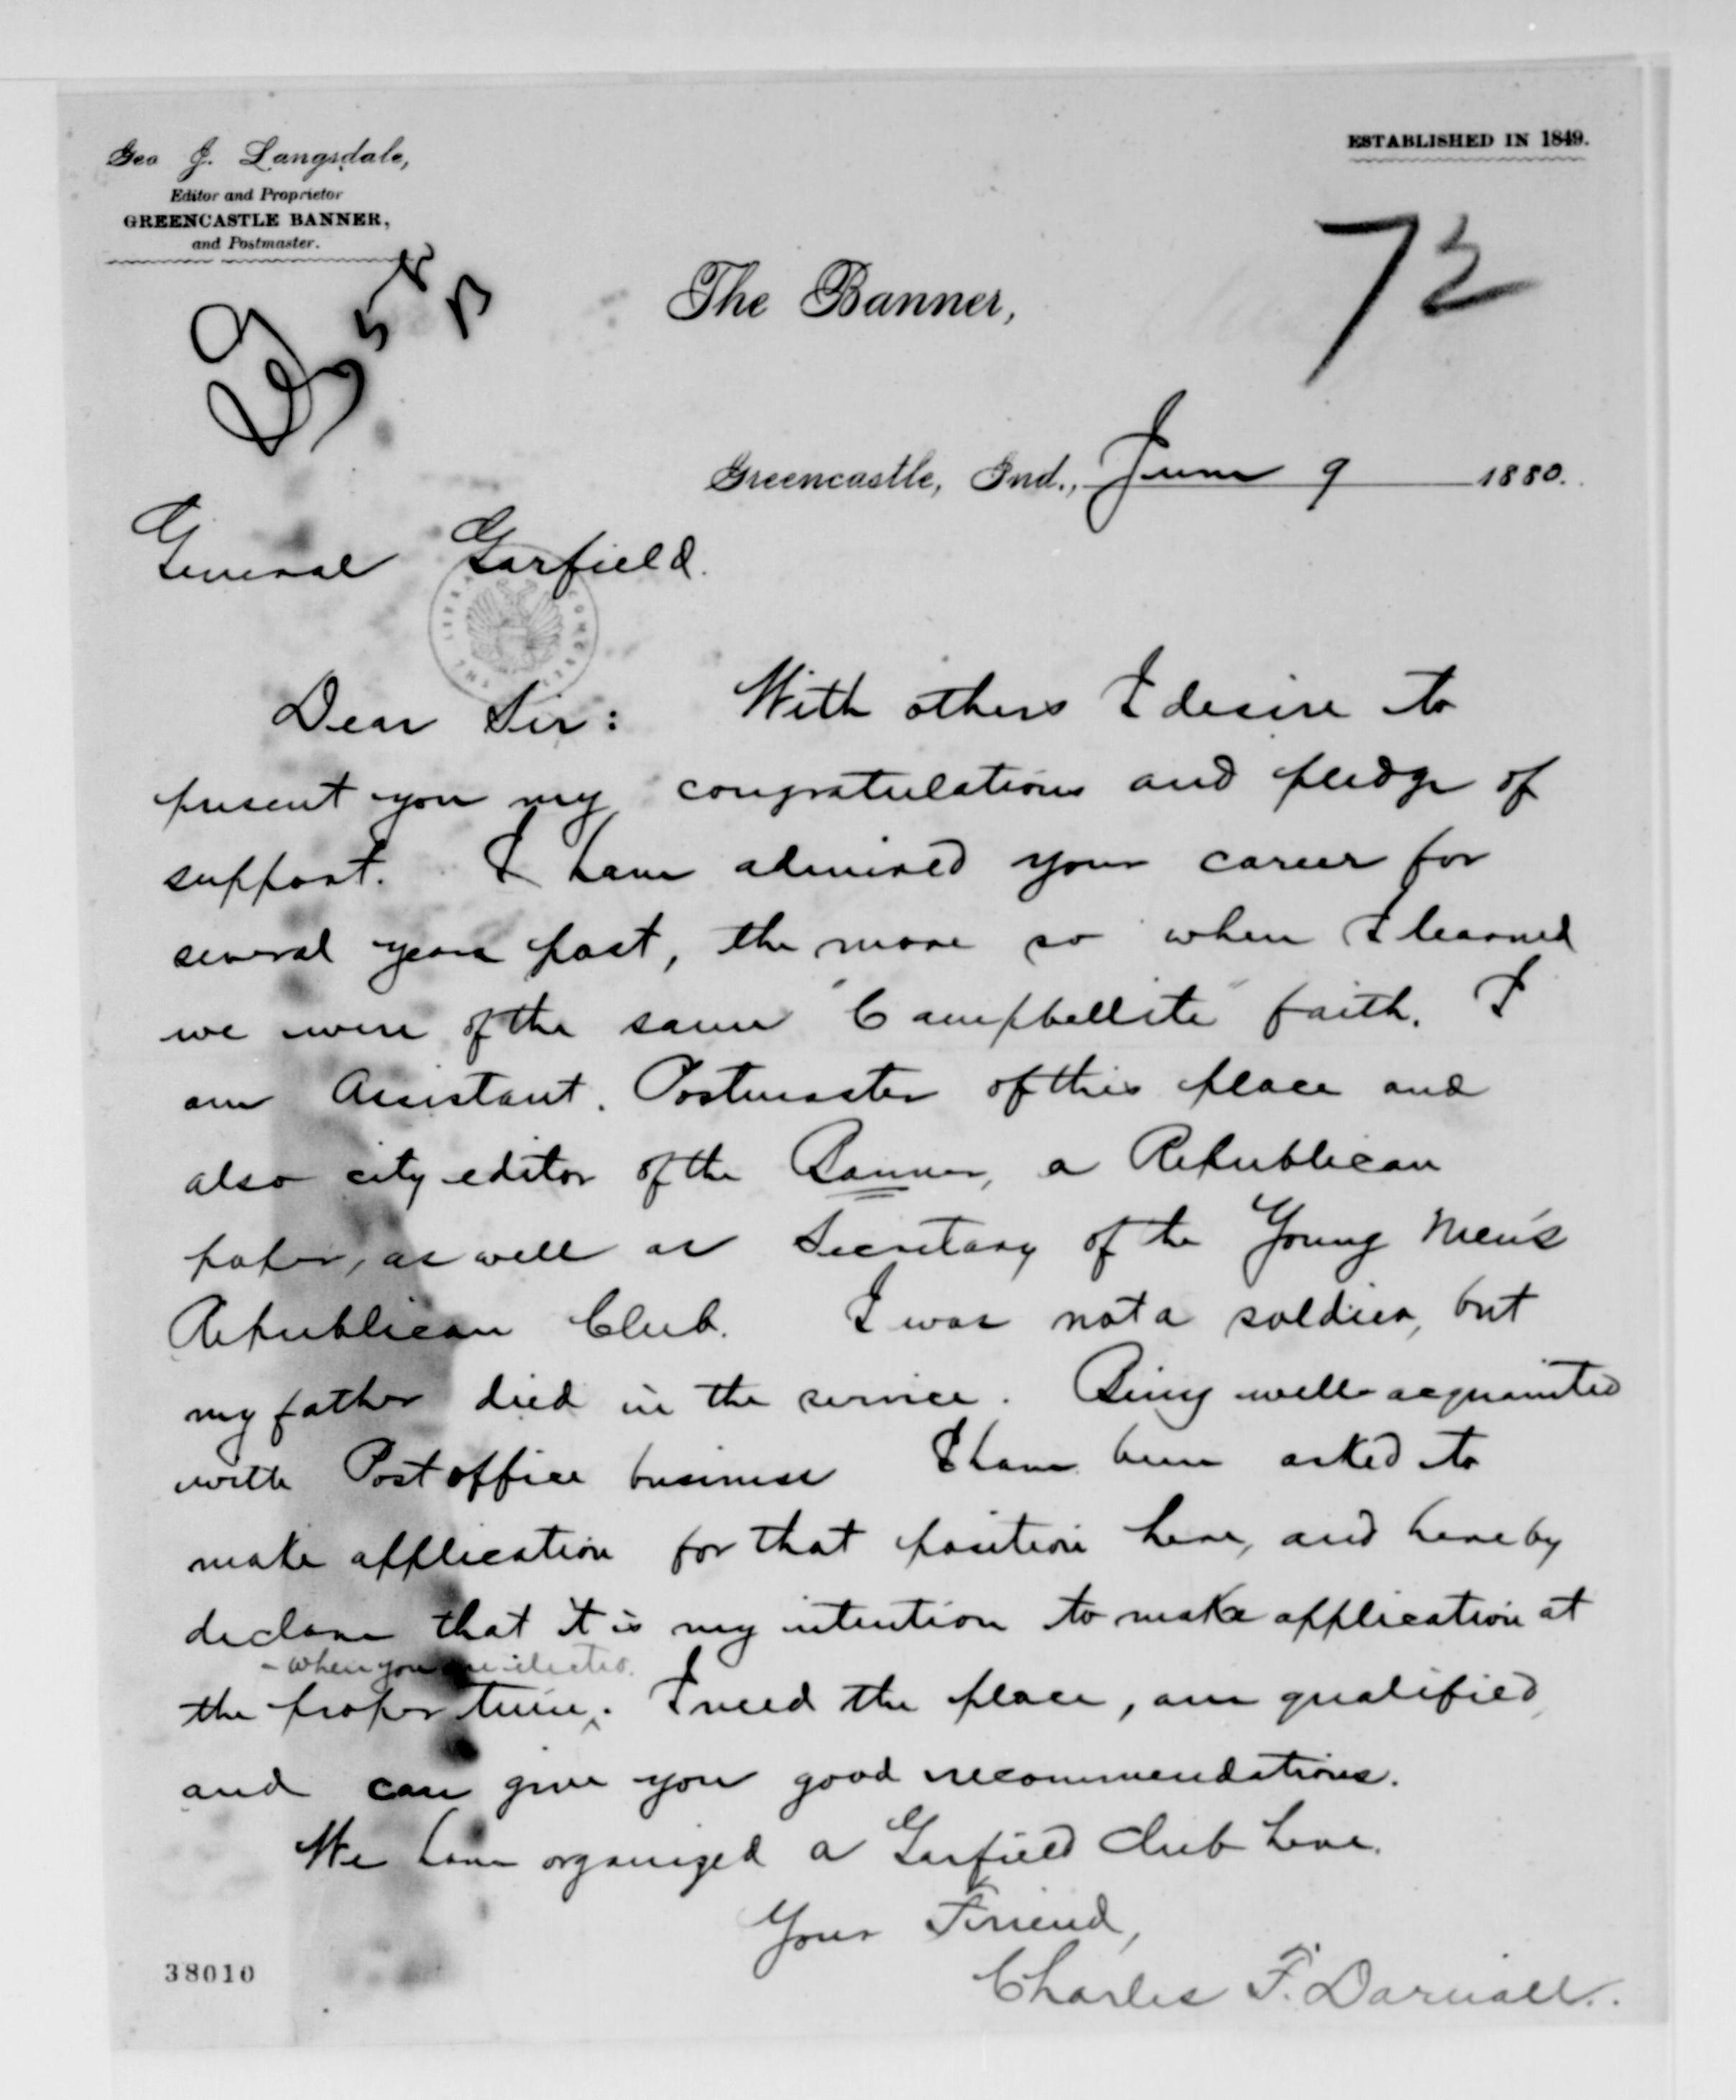 Geo J. Langsdale,
Editor and Proprietor
GREENCASTLE BANNER,
and Postmaster.
ESTABLISHED IN 1849.
72
The Banner,
Greencastle, Ind., June 9 1880.
General Garfield.
Dear Sir: With others I desire to
present you my congratulations and pledge of
support. I have admired your career for
several years past, the more so when I learned
we were of the same "Campbellite" faith. I
am Assistant Postmaster of this place and
also city editor of the Banner, a Republican
paper, as well as Secretary of the Young Men's
Republican Club. I was not a soldier, but
my father died in the service. Being well acquainted
with Post office business I have been asked to
make application for that position here, and hereby
declare that it is my intention to make application at
- when you are elected.
the proper time. I need the place, am qualified,
and can give you good recommendations.
We have organized a Garfield club here.
Your Friend,
Charles F. Darnall.
38010